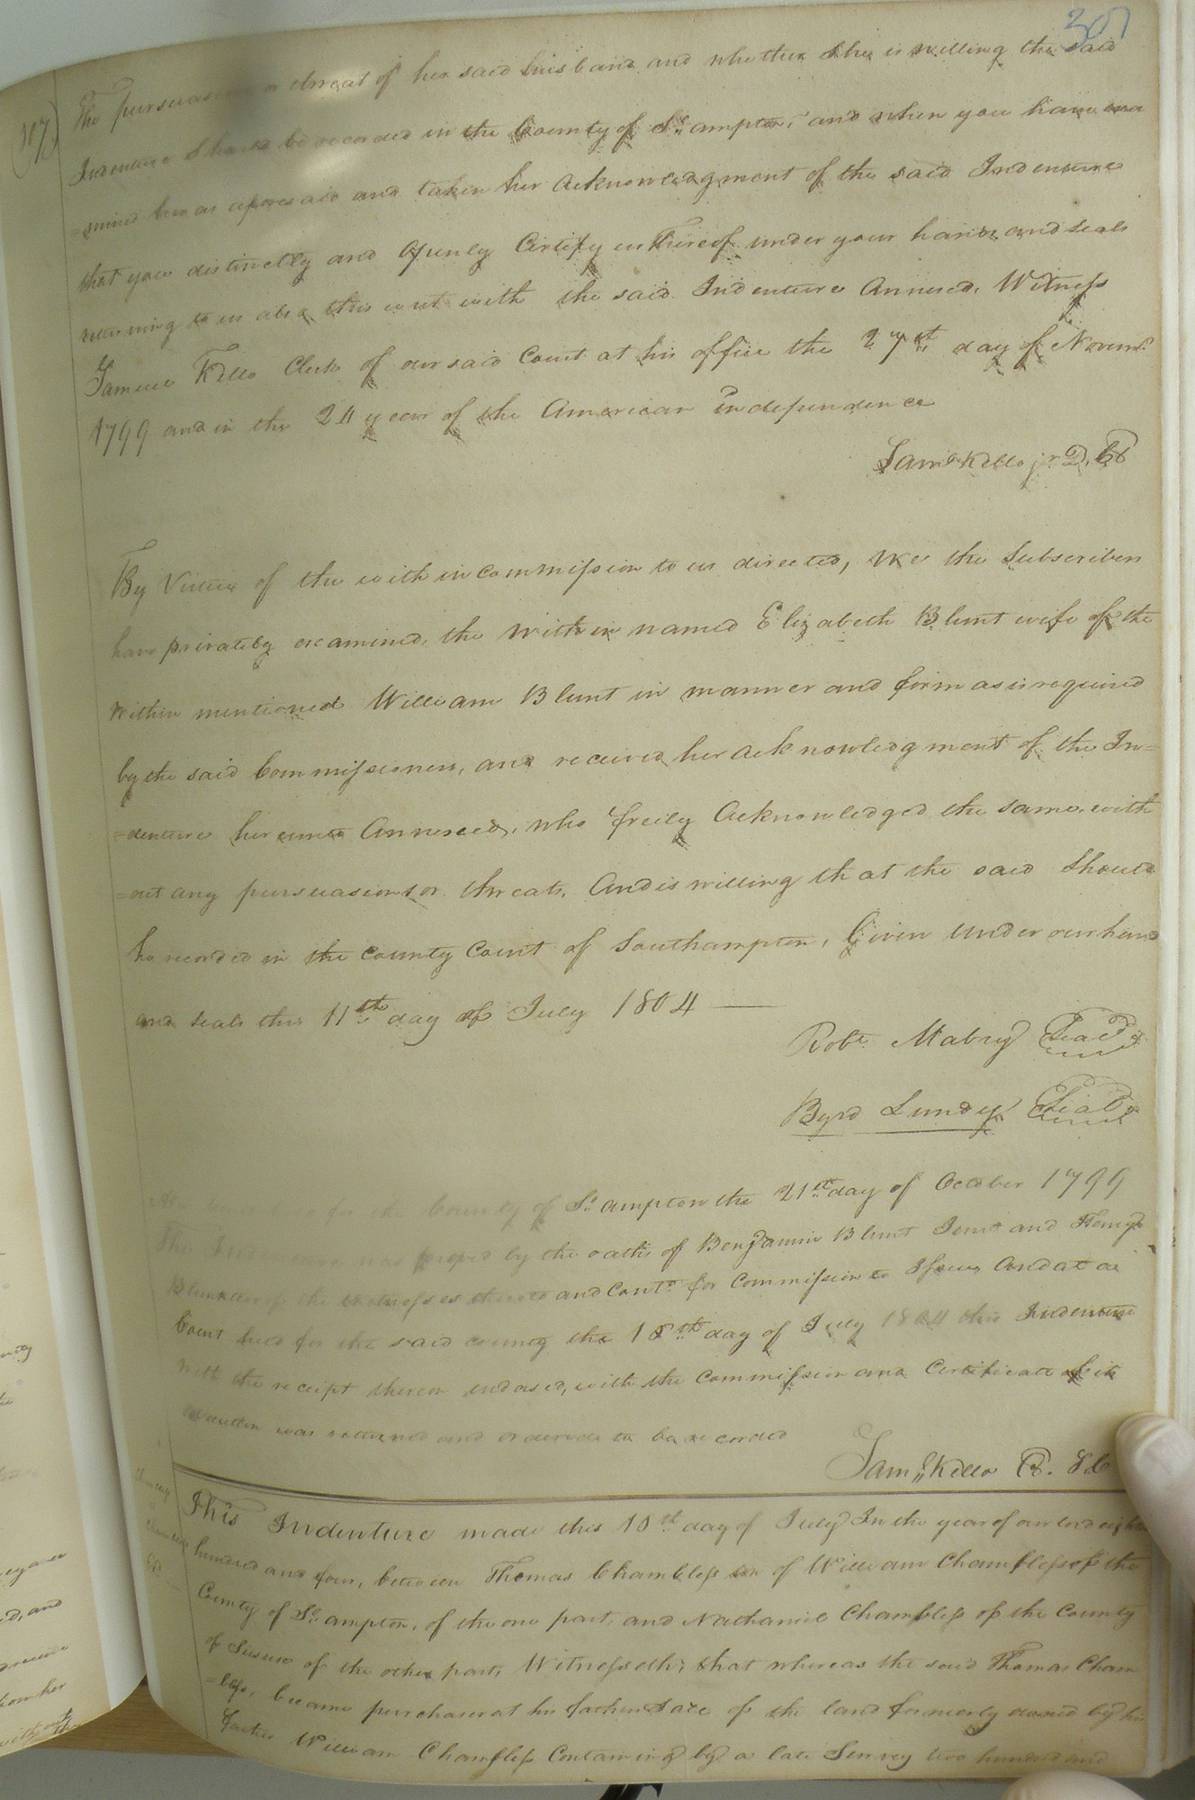 307
The persuasions or threat of her said husband and whether she is willing the said
Indenture should be recorded in the County of So. ampton, and when you have exa
=mined her as aforesaid and taken her acknowledgment of the said Indenture
that you distinctly and openly Certify us thereof under your hands and seals
returning to us also this writ with the said Indenture Annexed, Witness
Samuel Kello Clerk of our said Court at his office the 27st day of Novemr.
1799 and in the 24 year of the American independence
Saml. Kello jr. D. Ck
By Virtue of the within commission to us directed, We the Subscribers
have privately examined, the within named Elizabeth Blunt wife of the
within mentioned William Blunt in manner and form as is required
by the said Commissioners, and received her acknowledgment of the In=
=denture hereunto Annexed, who freely Acknowledged the same, with
=out any persuasions or threats, And is willing that the said Should
be recorded in the County Court of Southampton, Given under our hand
and seals this 11th day of July 1804
Robt. Mabry Seal
Byrd Lundy Seal
At for the County of So. ampton the 21st day of October 1799
This Indenture was proved by the oaths of Benjamin Blunt Junr and
Blunt of the witnesses thereto and Cont. for Commission to Issue, And at a
Court held for the said county the 18th day of July 1804 this Indenture
with the receipt thereon endorsed, with the Commission and Certificate of its
execution was returned and ordered to be recorded
Saml. Kello
This Indenture made this 10th day of July In the year of our lord eighteen
hundred and four, between Thomas Chambless son of William Chambless of the
County of So. ampton, of the one part, and Nathaniel Chambless of the County
of Sussex of the other part, Witnesseth, that whereas the said Thomas Cham
=bless, became purchaser at his fathers Sale of the land formerly owned by his
father William Chambless Containing by a late Survey two hundred and